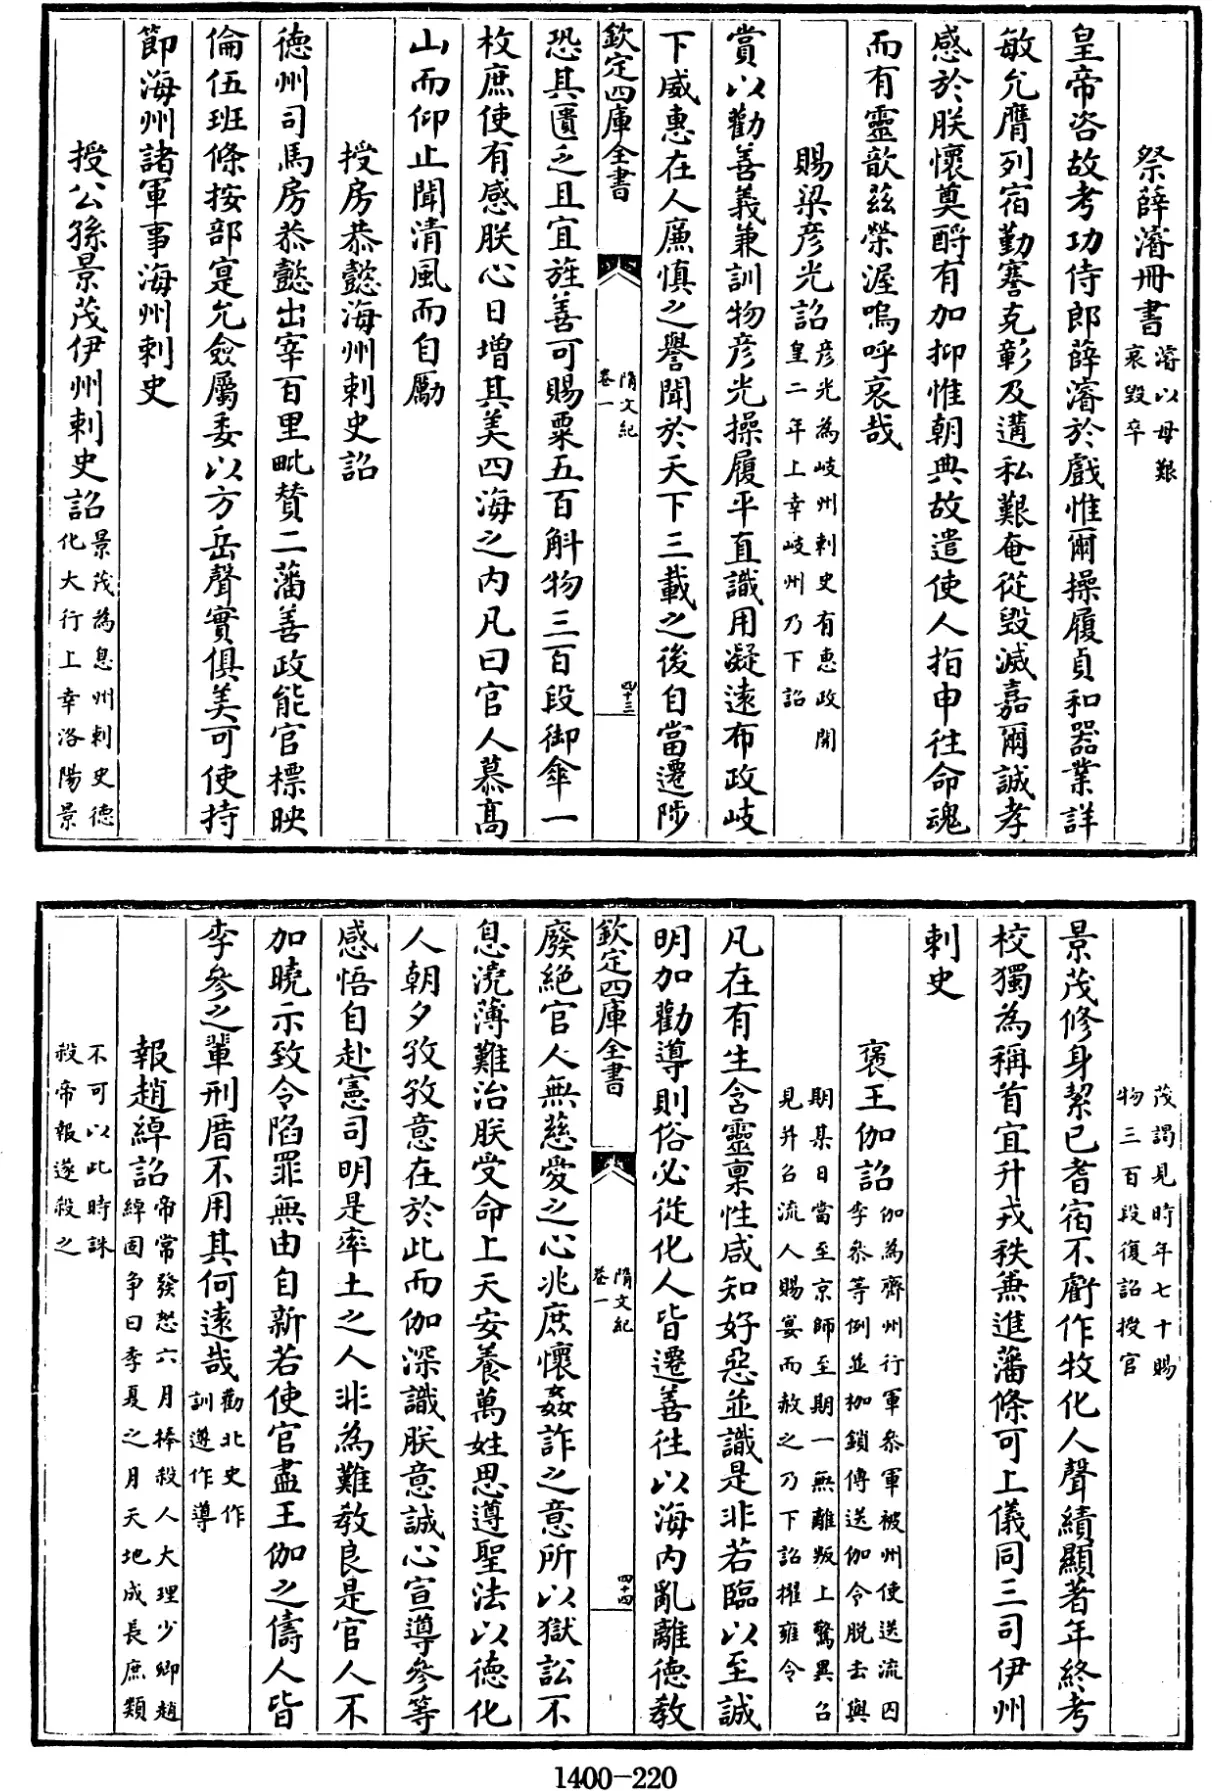 祭薛濬冊書濬以母艱哀毀卒
皇帝咨故考功侍郎薛濬於戲惟爾操履貞和器業詳
敏允膺列宿勤謇克彰及遘私艱奄從毀滅嘉爾誠孝
感於朕懷奠酹有加抑惟朝典故遣使人指申往命魂
而有靈歆茲榮渥嗚呼哀哉
賜梁彦光詔彦光為岐州刺史有惠政開皇二年上幸岐州乃下詔
賞以勸善義兼訓物彦光操履平直識用凝遠布政岐
下威惠在人廉慎之譽聞於天下三載之後自當遷陟
欽定四庫全書
隋文紀
卷一
四十三
恐其匱乏且宜旌善可賜粟五百斛物三百段御傘一
枚庶使有感朕心日增其美四海之内凡曰官人慕高
山而仰止聞清風而自勵
授房恭懿海州刺史詔
德州司馬房恭懿出宰百里毗贊二藩善政能官標映
倫伍班條按部寔允僉屬委以方岳聲實俱美可使持
節海州諸軍事海州刺史
授公孫景茂伊州刺史詔景茂為息州刺史德化大行上幸洛陽景
茂謁見時年七十賜物三百段復詔授官
景茂修身絜已耆宿不虧作牧化人聲績顯著年終考
校獨為稱首宜升戎秩兼進藩條可上儀同三司伊州
刺史
褒王伽詔伽為齊州行軍參軍被州使送流囚李參等例並枷鎖傳送伽令脱去與
期某日當至京師至期一無離叛上驚異召見并召流人賜宴而赦之乃下詔擢雍令
凡在有生含靈稟性咸知好惡並識是非若臨以至誠
明加勸導則俗必從化人皆遷善往以海内亂離德教
欽定四庫全書
隋文紀
卷一
四十四
廢絶官人無慈愛之心兆庶懷姦詐之意所以獄訟不
息澆薄難治朕受命上天安養萬姓思遵聖法以德化
人朝夕孜孜意在於此而伽深識朕意誠心宣導參等
感悟自赴憲司明是率土之人非為難教良是官人不
加曉示致令陷罪無由自新若使官盡王伽之儔人皆
李參之輩刑厝不用其何遠哉勸北史作訓遵作導
報趙綽詔帝常發怒六月捧殺人大理少卿趙綽固争曰季夏之月天地成長庶類
不可以此時誅殺帝報遂殺之
1400-220